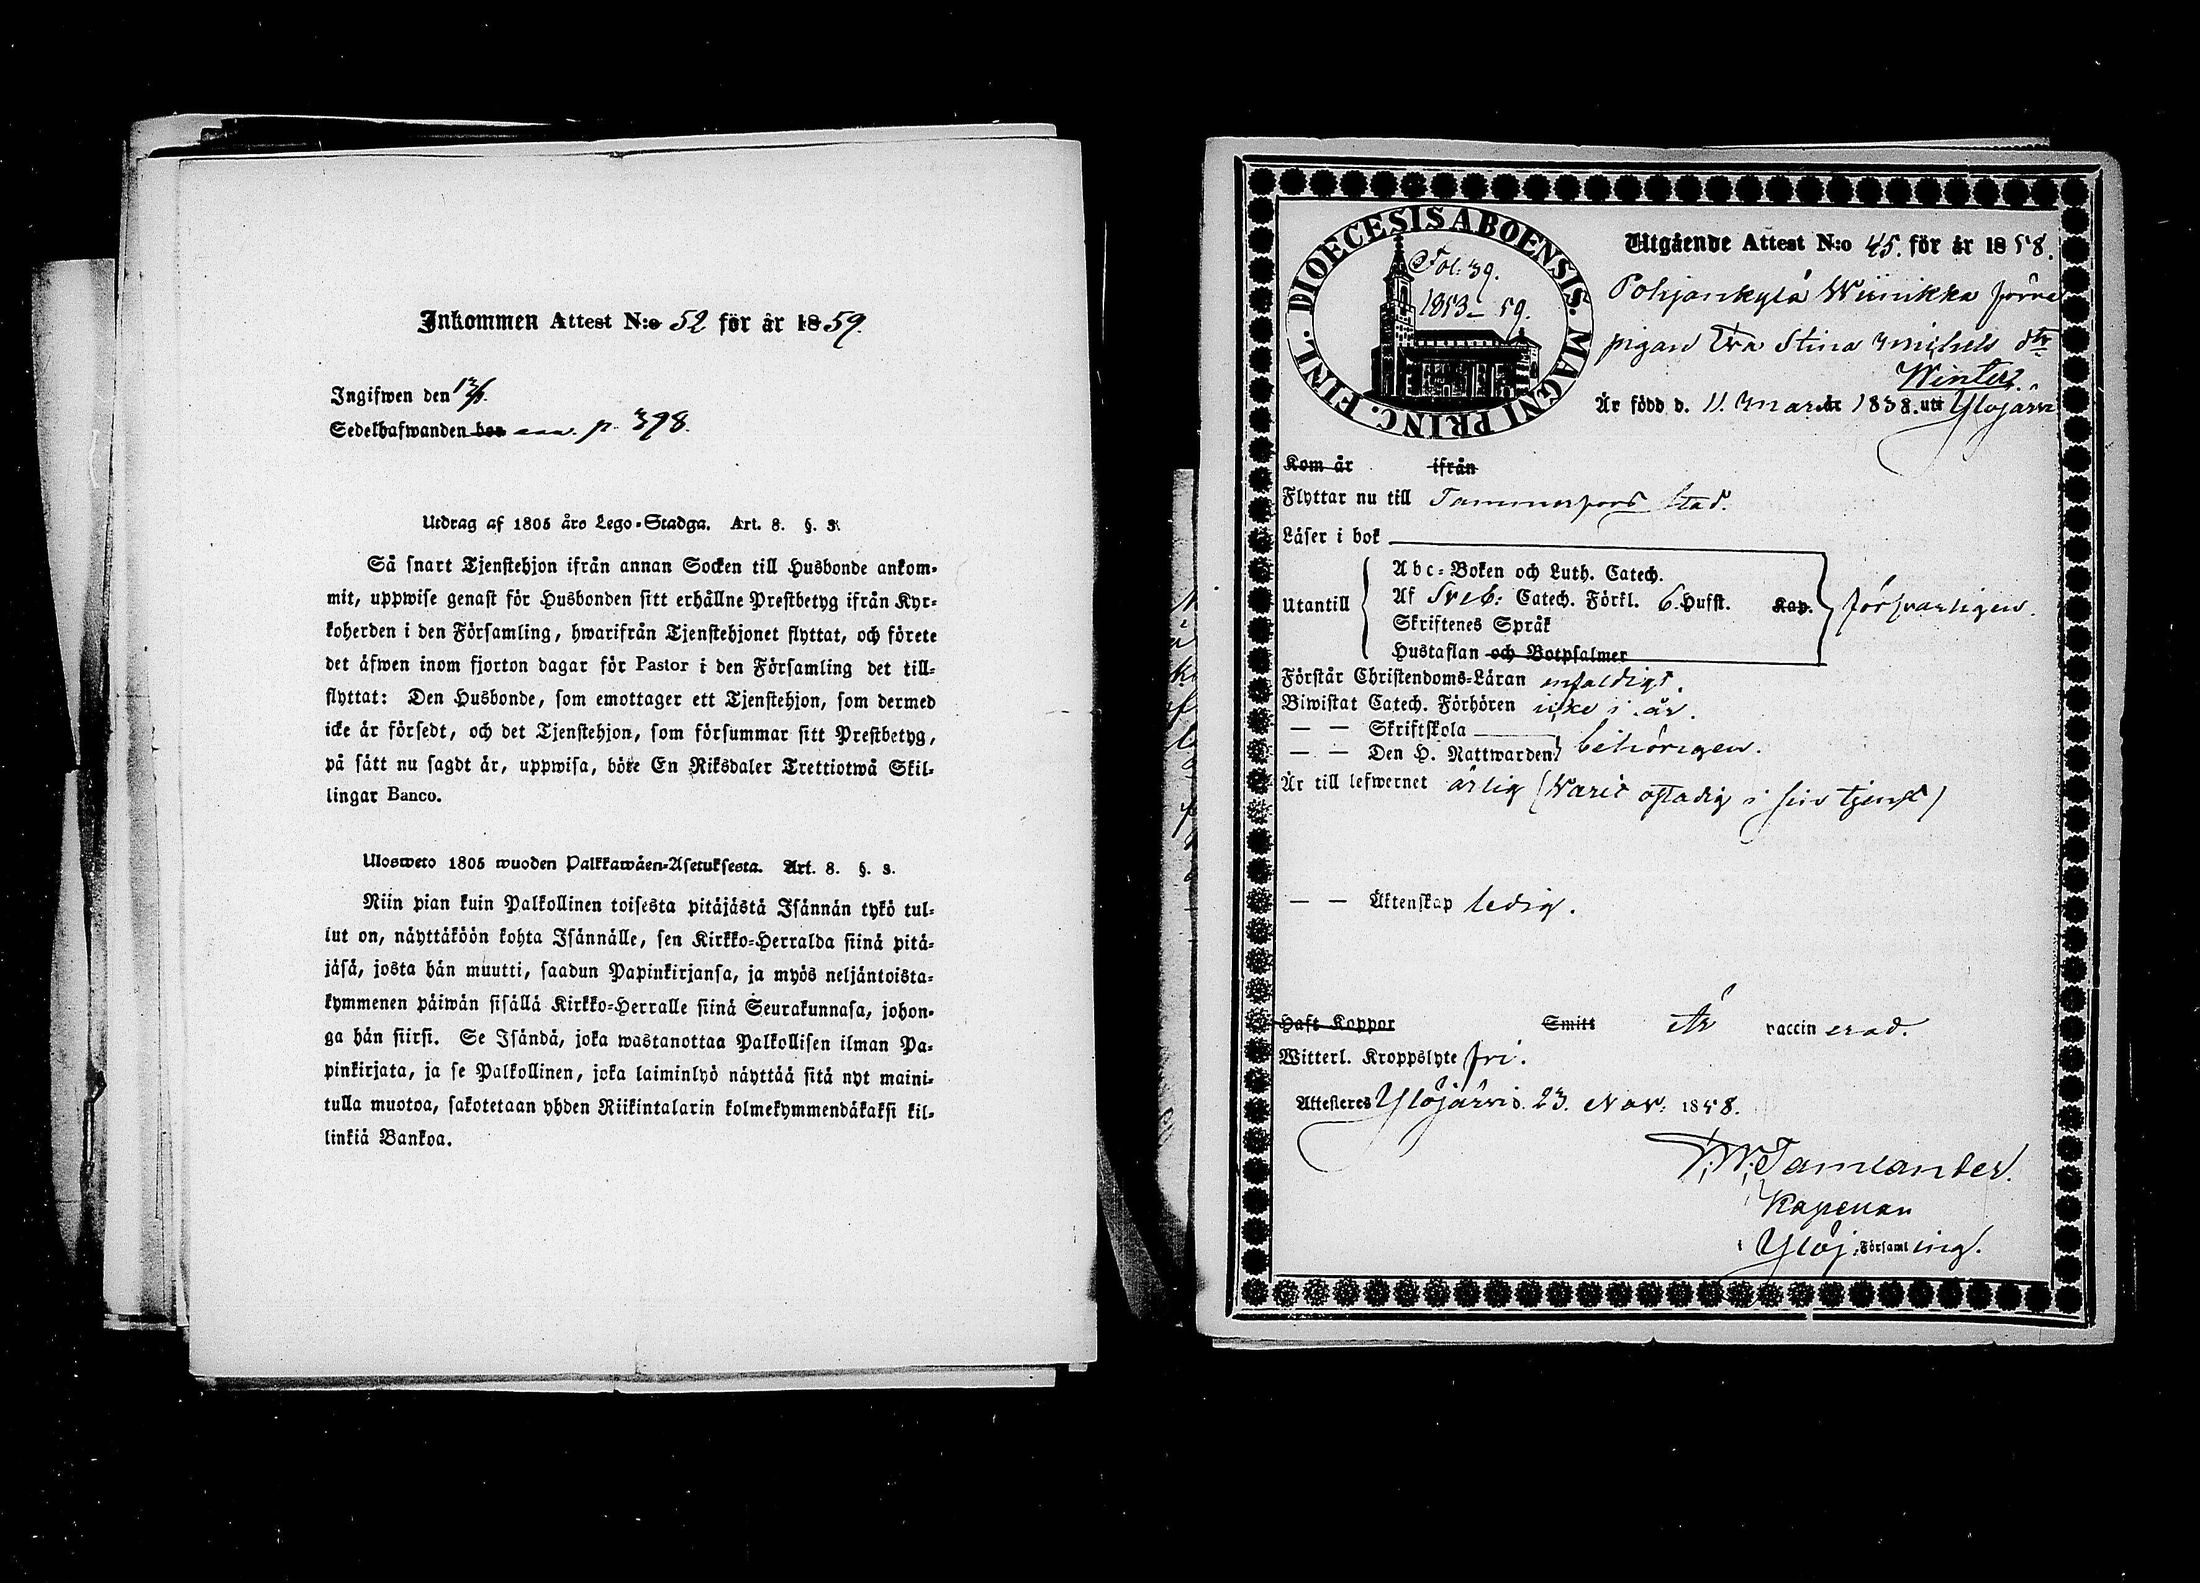 Inkommen Attest N:o 52 för år 1859.
Ingifwen den 13/6.
Sedelhafwanden bor p. 398.
Utdrag af 1805 åro Lego-Stadga. Art. 8. §. 3.
Så snart Tjenstehjon ifrån annan Socken till Husbonde ankom-
mit, uppwise genast för Husbonden sitt erhållne Prestbetyg ifrån Kyr-
koherden i den Församling, hwarifrån Tjenstehjonet flyttat, och förete
det äfwen inom fjorton dagar för Pastor i den Församling det till-
flyttat: Den Husbonde, som emottager ett Tjenstehjon, som dermed
icke är försedt, och det Tjenstehjon, som försummar sitt Prestbetyg,
på sätt nu sagdt är, uppwisa, böte En Riksdaler Trettiotwå Skil-
lingar Banco.
Ulosweto 1805 wuoden Palkkawäen-Asetuksesta. Art. 8. §. 3.
Niin pian kuin Palkollinen toisesta pitäjästä Isännän tykö tul-
lut on, näyttäköön kohta Isännälle, sen Kirkko-Herralda siinä pitä-
jäsä, josta hän muutti, saadun Papinkirjansa, ja myös neljäntoista-
kymmenen päiwän sisällä Kirkko-Herralle siinä Seurakunnasa, johon-
ga hän siirsi. Se Isändä, joka wastanottaa Palkollisen ilman Pa-
pinkirjata, ja se Palkollinen, joka laiminlyö näyttää sitä nyt maini-
tulla muotoa, sakotetaan yhden Riikintalarin kolmekymmendäkaksi kil-
linkiä Bankoa.
DIOECESIS ABOENSIS. MAGNI PRINC. FINL.
Fol: 39.
1853–59.
Utgående Attest N:o 45. för år 1858.
Pohjankylä Wiinikka förra
pigan Eva Stina Michels dtr
Winter.
Är född d. 11. Mars år 1838. uti Ylöjärvi
Kom år ifrån
Flyttar nu till Tammerfors stad.
Läser i bok
Utantill
Abc-Boken och Luth. Catech.
Af Sveb: Catech. Förkl. 6. Hufst. Kap.
Skriftenes Språk
Hustaflan och Botpsalmer
försvarligen.
Förstår Christendoms-Läran enfaldigt.
Biwistat Catech. Förhören icke i år.
— — Skriftskola
— — Den H. Nattwarden behörigen.
Är till lefwernet ärlig (Varit ostadig i sin tjenst)
— — Äktenskap ledig.
Haft Koppor Smitt Är vaccinerad.
Witterl. Kroppslyte fri.
Attesteres Ylöjärvi d. 23. Nov. 1858.
Tamlander.
Kapellan
i Ylöj. Församling.